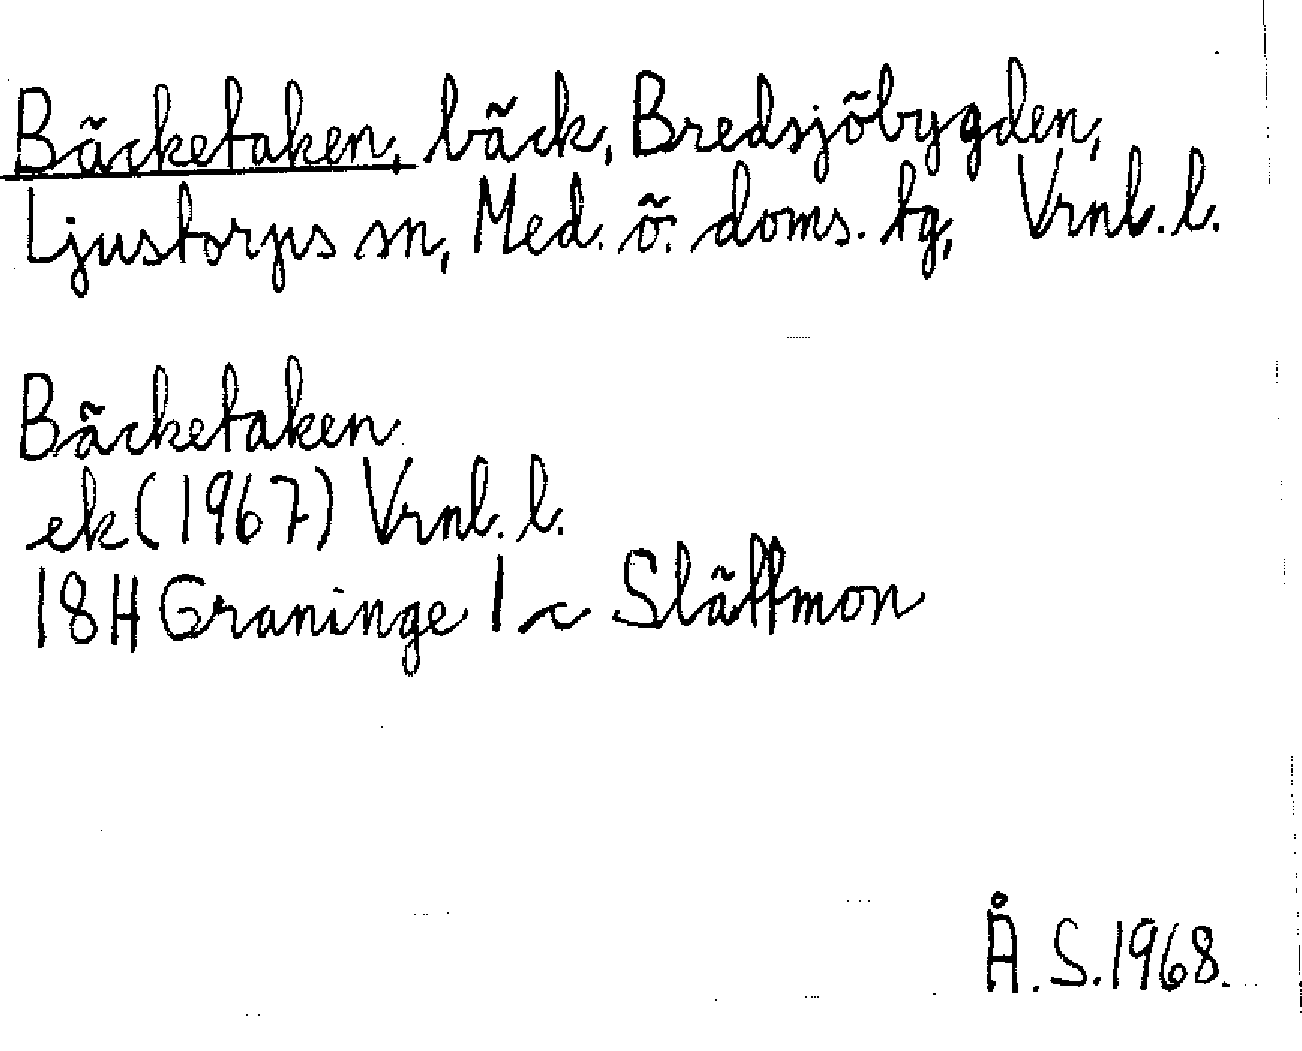 Bäcketaken, bäck, Bredsjöbygden,
Ljustorps sn, Med. ö. doms. tg, Vrnl. l.
Bäcketaken
ek (1967) Vrnl. l.
18H Graninge 1 c Slättmon
Å.S. 1968.